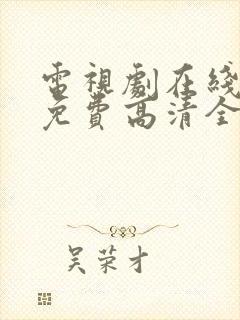 電視劇在綫
免費高清全
吴荣才